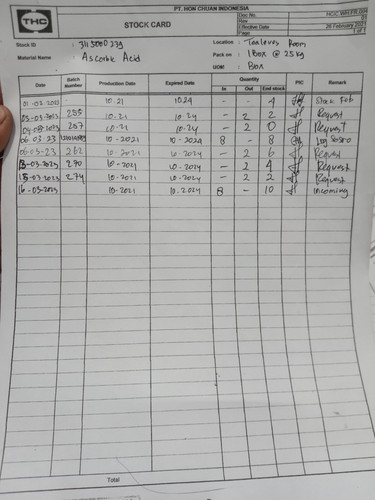 PT. HON CHUAN INDONESIA
THC
STOCK CARD
Doc No. HCIC.WH.FR.004
Rev 01
Effective Date 26 February 2021
Page 1 of 1
Stock ID : 3115000239
Location : Tealeves Room
Material Name : Ascorbic Acid
Pack on : 1 Box @ 25 kg
UOM : Box
Date Batch Number Production Date Expired Date Quantity PIC Remark
In Out End stock
01-02-2023 10.21 10.24 - - 4 Stock Feb
03-03-2023 255 10-21 10-24 - 2 2 Request
04-03-2023 257 10-21 10-24 - 2 0 Request
06-03-23 10-2021 10-2024 8 - 8
06-03-23 262 10-2021 10-2024 - 2 6 Request
13-03-2023 270 10-2021 10-2024 - 2 4 Request
15-03-2023 274 10-2021 10-2024 - 2 2 Request
16-03-2023 10-2021 10-2024 8 - 10 Incoming
Total